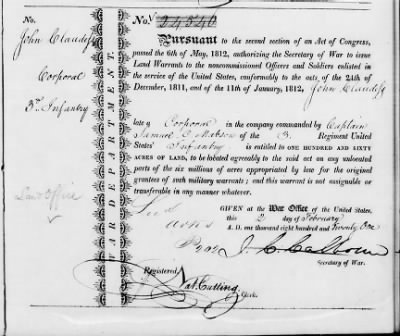 No.
John Claudess
Corporal
3rd Infantry
Land Office
WAR DEPARTMENT.
No. 24546
Pursuant to the second section of an Act of Congress,
passed the 6th of May, 1812, authorizing the Secretary of War to issue
Land Warrants to the noncommissioned Officers and Soldiers enlisted in
the service of the United States, conformably to the acts of the 24th of
December, 1811, and of the 11th of January, 1812, John Claudess
late a Corporal in the company commanded by Captain
Samuel C. of the 3. Regiment United
States' Infantry is entitled to ONE HUNDRED AND SIXTY
ACRES OF LAND, to be located agreeably to the said act on any unlocated
parts of the six millions of acres appropriated by law for the original
grantees of such military warrants; and this warrant is not assignable or
transferable in any manner whatever.
GIVEN at the War Office of the United States,
this 2 day of February
A. D. one thousand eight hundred and twenty One
J. C. Calhoun
Secretary of War.
Registered,
Nat. Cutting
Clerk.